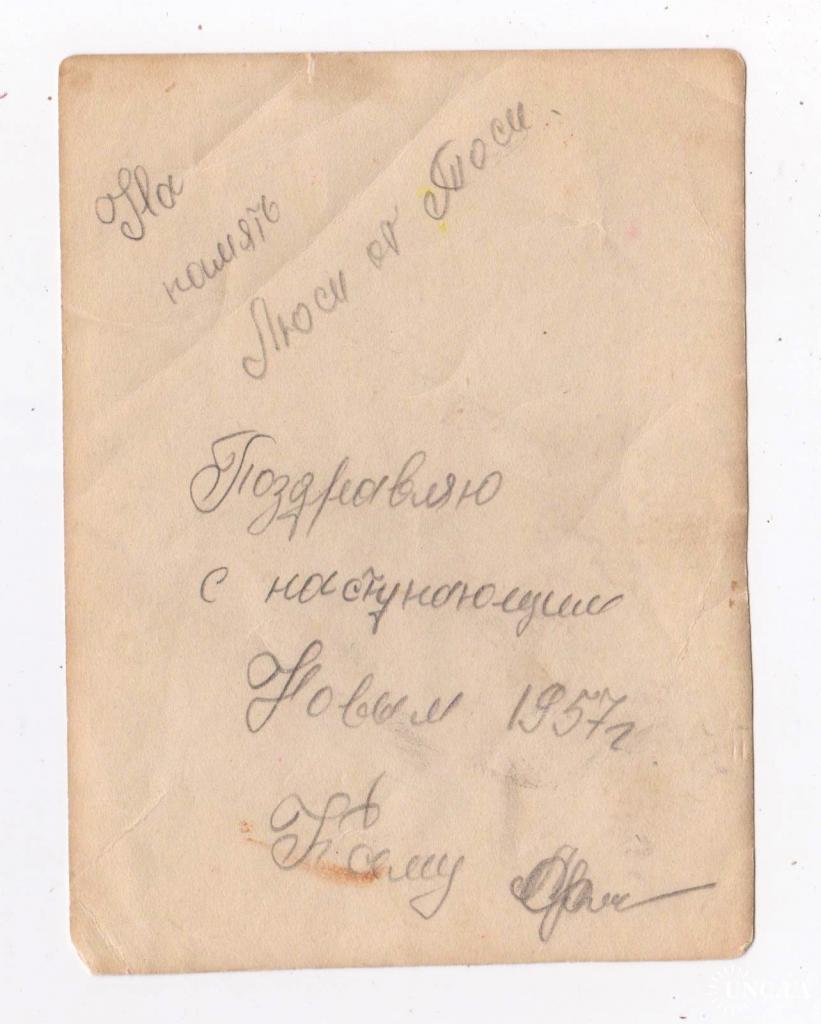 На
память
Люси от Тоси.
Поздравляю
с наступающим
Новым 1957г
UNC.UA